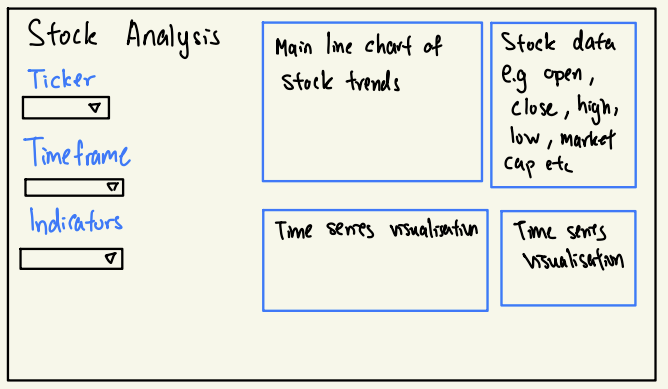 Stock Analysis
Ticker
Timeframe
Indicators
Main line chart of
Stock trends
Stock data
e.g open,
close, high,
low, market
cap etc
Time series visualisation
Time series
visualisation